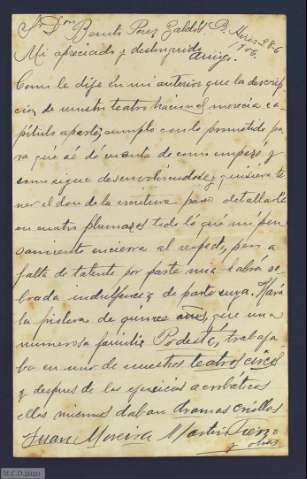 Sr Dn Benito Perez Galdós
Bs Aires
1906.
Mi apreciado y distinguido Amigo.
Como le dije en mi anterior que la descrip-
cion de nuestro teatro nacional merecia ca-
pítulo aparte, cumplo con lo prometido pa-
ra que sé dé cuenta de como empezó y
como sigue desenvolviendose, y quisiera te-
ner el don de la escritura para detallarle
en cuatro plumazos todo lo que mi pen-
samiento encierra al respecto, pero a
falta de talento por parte mia habrá so-
brada indulgencia de parte suya. Hará
la friolera de quince años, que una
numerosa familia Podestá, trabaja
ba en uno de nuestros teatros circos
y despues de los ejercicios acrobáticos
ellos mismos daban dramas criollos
Juan Moreira Martin Fierro
y otros